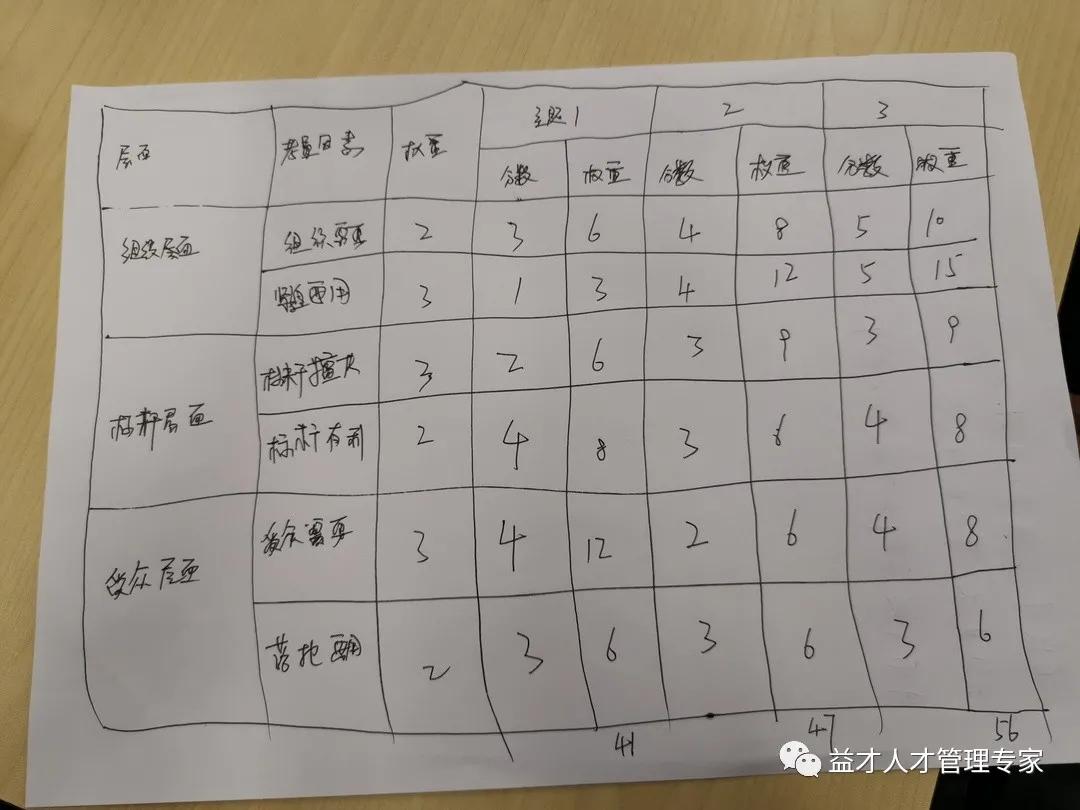 层面 考量因素 权重 主题1 2 3
分数 权重 分数 权重 分数 权重
组织层面 组织需要 2 3 6 4 8 5 10
3 1 3 4 12 5 15
标杆层面 标杆擅长 3 2 6 3 9 3 9
标杆有利 2 4 8 3 6 4 8
受众层面 受众需要 3 4 12 2 6 4 8
落地 2 3 6 3 6 3 6
41 47 56
益才人才管理专家